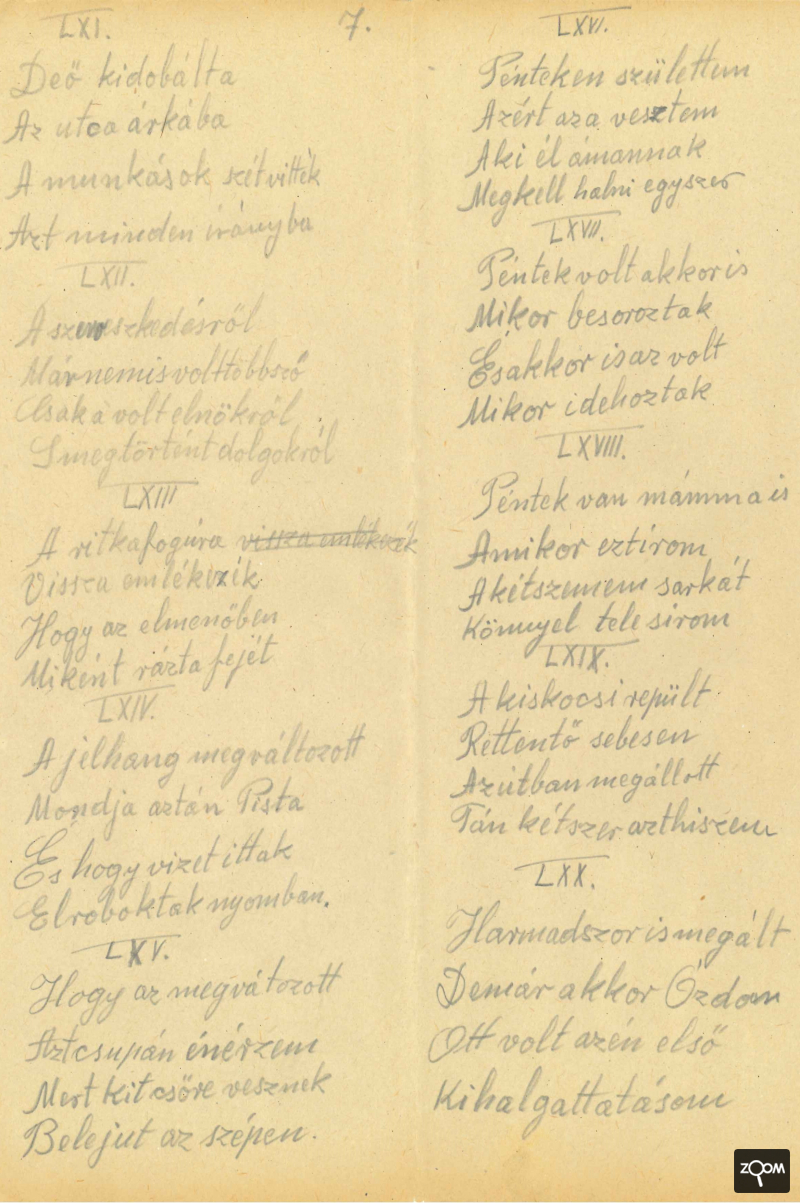 7.
LXI.
Deő kidobálta
Az utca árkába
A munkások szétvitték
Azt minden irányba
LXII.
A szereszkedésről
Márnemisvolttöbbszó
Csak a volt elnökről
S megtörtént dolgokról
LXIII
A ritkafogúra vissza emlékezik
Vissza emlékezik
Hogy az elmenőben
Miként rázta fejét
LXIV.
A jelhang megváltozott
Mondja aztán Pista
És hogy vizet ittak
Elroboktak nyomban.
LXV.
Hogy az megvátozott
Aztcsupán énérzem
Mert kit csőre vesznek
Belejut az szépen.
LXVI.
Pénteken születtem
Azért aza vesztem
Aki él ámannak
Megkell halni egyszer
LXVII.
Péntek volt akkoris
Mikor besoroztak
Ésakkor isaz volt
Mikor idehoztak
LXVIII.
Péntek van mámma is
Amikor eztírom
Akétszemem sarkát
Könnyel tele sírom
LXIX.
A kiskocsi repült
Rettentő sebesen
Azútban megállott
Tán kétszer azthiszem
LXX.
Harmadszor is megált
Demár akkor Ózdon
Ott volt azén első
Kihalgattatásom
ZOOM